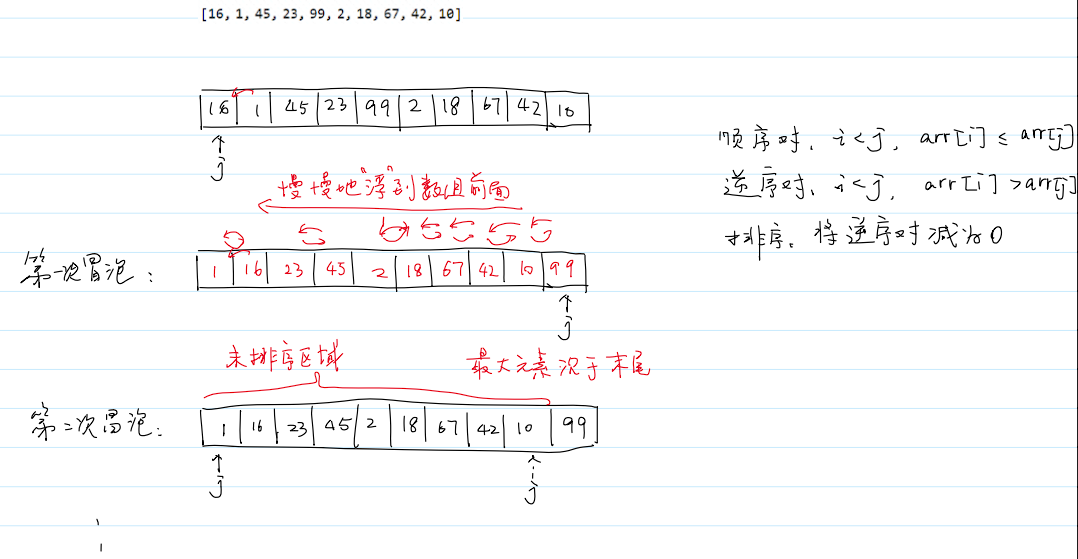 [16, 1, 45, 23, 99, 2, 18, 67, 42, 10]
16 1 45 23 99 2 18 67 42 10
j
顺序对. i<j, arr[i] ≤ arr[j]
慢慢地"浮"到数组前面
逆序对. i<j, arr[i] >arr[j]
排序. 将逆序对减为0
第一次冒泡:
1 16 23 45 2 18 67 42 10 99
j
未排序区域
最大元素沉于末尾
第二次冒泡:
1 16 23 45 2 18 67 42 10 99
j j